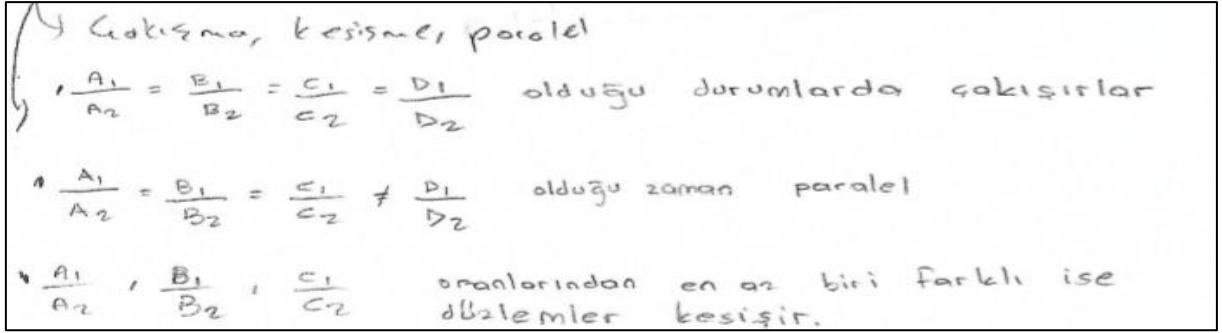 ↳ Çakışma, kesişme, paralel
• A₁/A₂ = B₁/B₂ = C₁/C₂ = D₁/D₂ olduğu durumlarda çakışırlar
• A₁/A₂ = B₁/B₂ = C₁/C₂ ≠ D₁/D₂ olduğu zaman paralel
• A₁/A₂ , B₁/B₂ , C₁/C₂ oranlarından en az biri farklı ise
düzlemler kesişir.